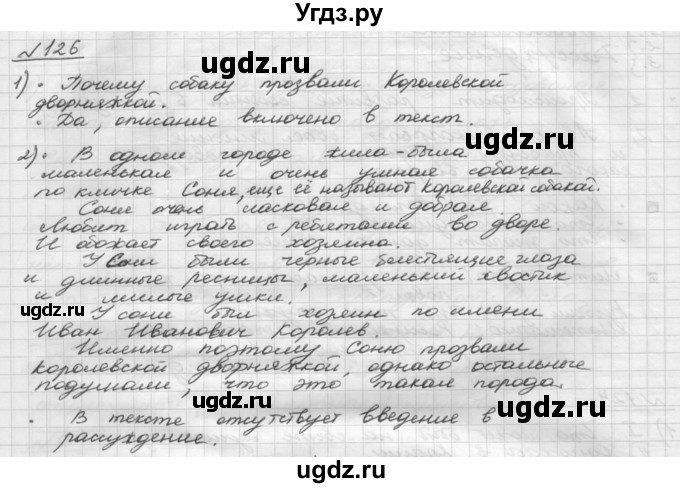 Угдз.ру
№126
1) • Почему собаку прозвали Королевской
дворняжкой.
• Да, описание включено в текст.
2) • В одном городе жила-была
маленькая и очень умная собачка
по кличке Соня, еще её называют Королевская собакой.
Соня очень ласковая и добрая.
Любит играть с ребятами во дворе.
И обожает своего хозяина.
У Сони были черные блестящие глаза
и длинные ресницы, маленький хвостик
и милые ушки.
У сони был хозяин по имени
Иван Иванович Королев
Именно поэтому Соню прозвали
королевской дворняжкой, однако остальные
подумали, что это такая порода.
• В тексте отсутствует введение в
рассуждение.
ugdz.ru ugdz.ru ugdz.ru
ugdz.ru ugdz.ru
ugdz.ru ugdz.ru ugdz.ru
ugdz.ru ugdz.ru
ugdz.ru ugdz.ru ugdz.ru
ugdz.ru